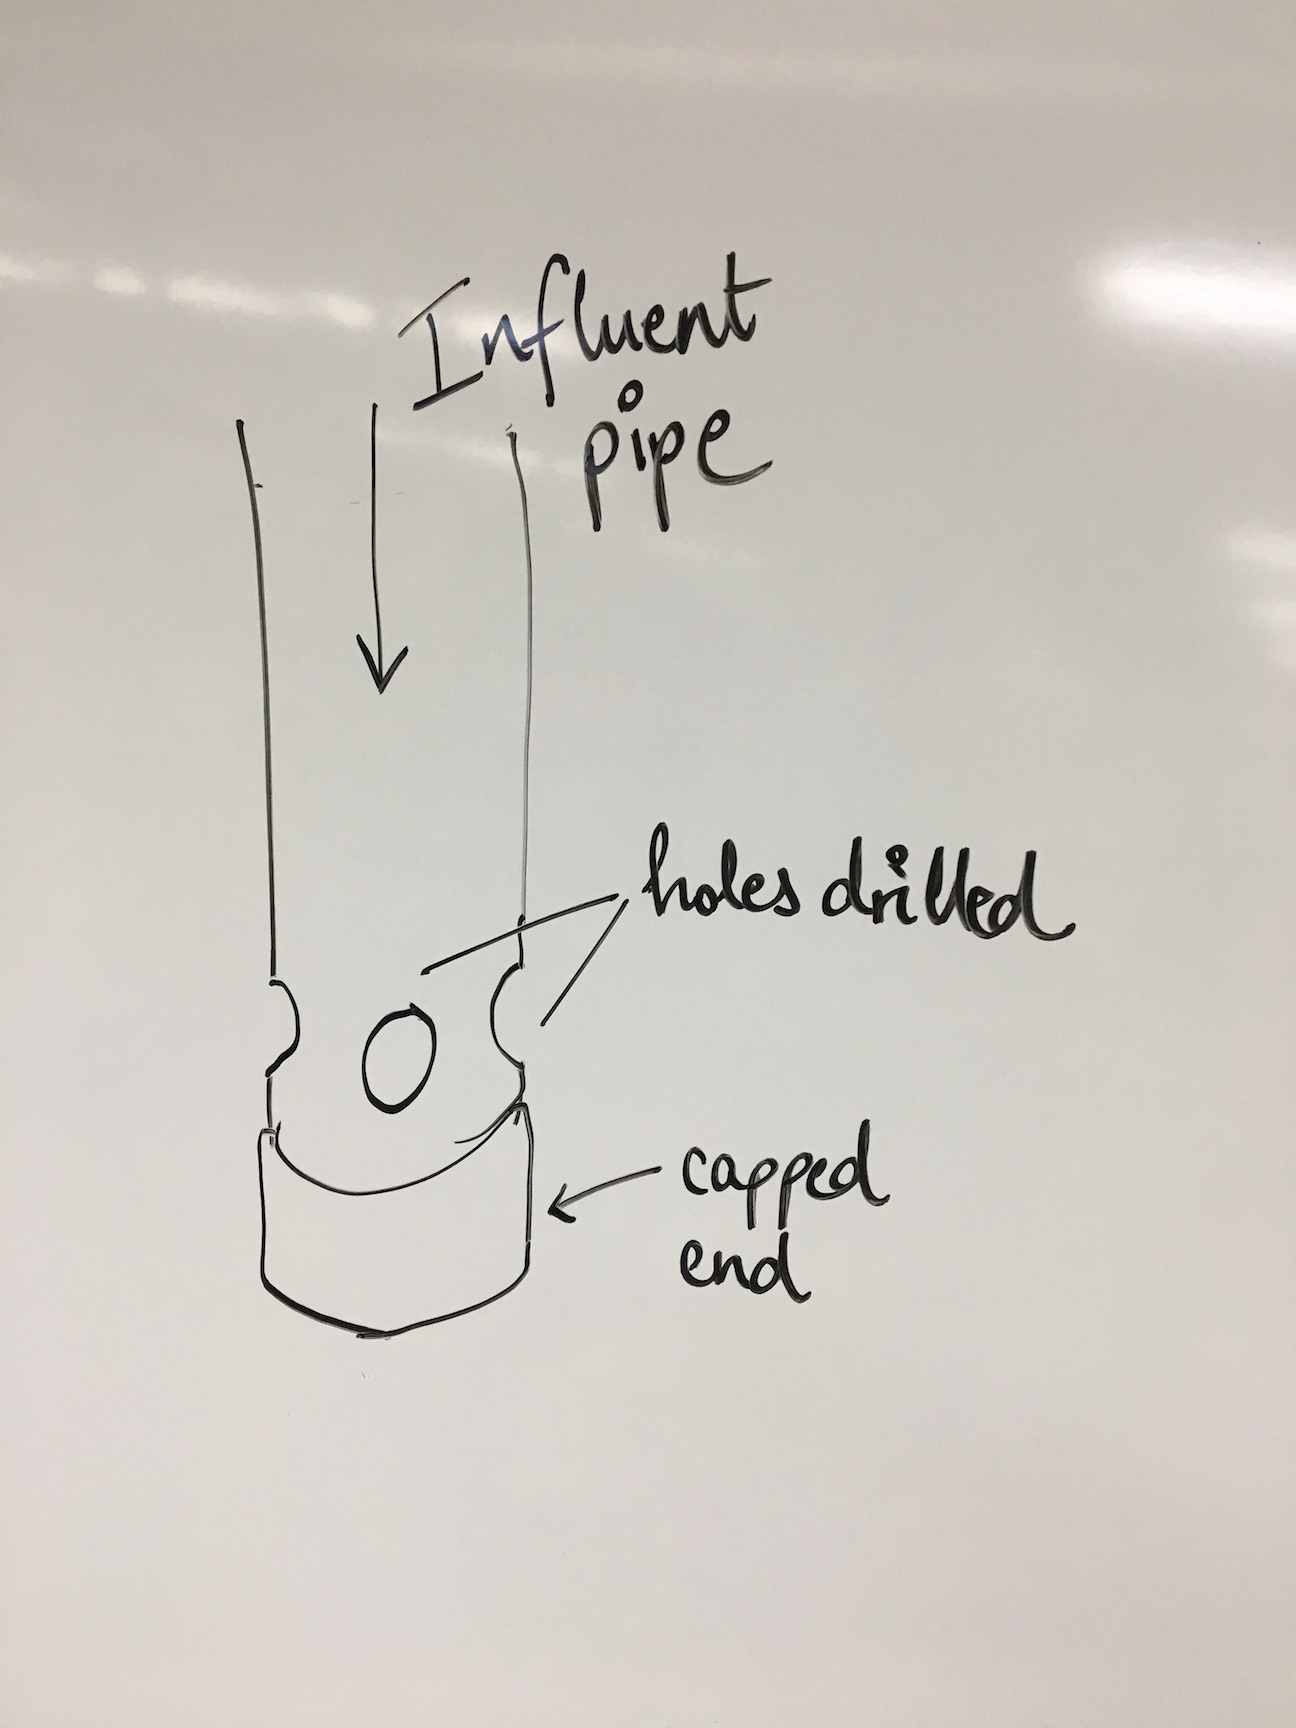 Influent
pipe
holes drilled
capped
end